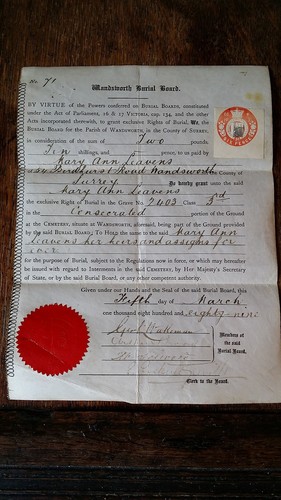 No. 71
Wandsworth Burial Board.
BY VIRTUE of the Powers conferred on BURIAL BOARDS, constituted
under the Act of Parliament, 16 & 17 VICTORIA, cap. 134, and the other
Acts incorporated therewith, to grant exclusive Rights of Burial, We, the
BURIAL BOARD for the Parish of WANDSWORTH, in the COUNTY of SURREY,
in consideration of the sum of Two pounds,
Ten shillings, and pence, to us paid by
Mary Ann Leavens
Road Wandsworth County of
Surrey Do hereby grant unto the said
Mary Ann Leavens
the exclusive Right of Burial in the Grave No. 2403 Class 3rd
in the Consecrated portion of the Ground
at the CEMETERY, situate at WANDSWORTH, aforesaid, being part of the Ground provided
by the said BURIAL BOARD; To Hold the same to the said Mary Ann
Leavens her heirs and assigns for
ever
for the purpose of Burial, subject to the Regulations now in force, or which may hereafter
be issued with regard to Interments in the said CEMETERY, by Her Majesty's Secretary
of State, or by the said Burial Board, or any other competent authority.
Given under our Hands and the Seal of the said Burial Board, this
Fifth day of March
one thousand eight hundred and eighty-nine
Members of
the said
Burial Board.
Clerk to the Board.